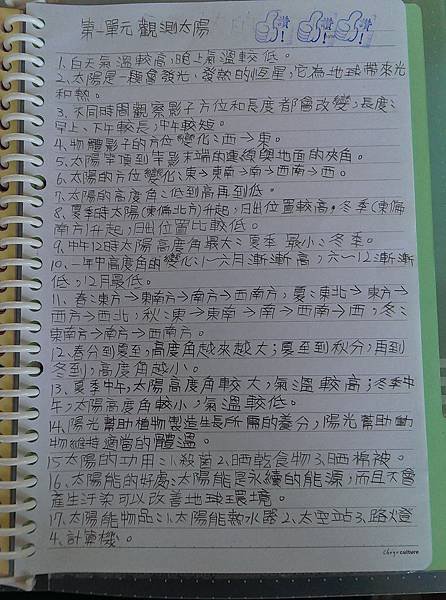 第一單元 觀測太陽
1.白天氣溫較高,晚上氣溫較低。
2.太陽是一顆會發光、發熱的恆星,它為地球帶來光
和熱。
3.不同時間觀察影子方位和長度都會改變,長度:
早上、下午較長,中午較短。
4.物體影子的方位變化:西→東。
5.太陽竿頂到竿影末端的連線與地面的夾角。
6.太陽的方位變化:東→東南→南→西南→西。
7.太陽的高度角:低到高再到低。
8.夏季時太陽(東偏北方)升起,日出位置較高,冬季(東偏
南方)升起,日出位置比較低。
9.中午12時太陽高度角最大:夏季 最小:冬季。
10.一年中高度角的變化:1~六月漸漸高,六~12漸漸
低,12月最低。
11.春:東方→東南方→南方→西南方,夏:東北→東方→
西方→西北,秋:東→東南→南→西南→西,冬:
東南方→南方→西南方。
12.春分到夏至,高度角越來越大;夏至到秋分,再到
冬到,高度角越小。
13.夏季中午,太陽高度角較大,氣溫較高;冬季中
午,太陽高度角較小,氣溫較低。
14.陽光幫助植物製造生長所需的養分,陽光幫助動
物維持適當的體溫。
15太陽的功用:1.殺菌2.晒乾食物3.晒棉被。
16.太陽能的好處:太陽能是永續的能源,而且不會
產生汙染可以改善地球環境。
17.太陽能物品:1.太陽能熱水器2.太空站3.路燈
4.計算機。